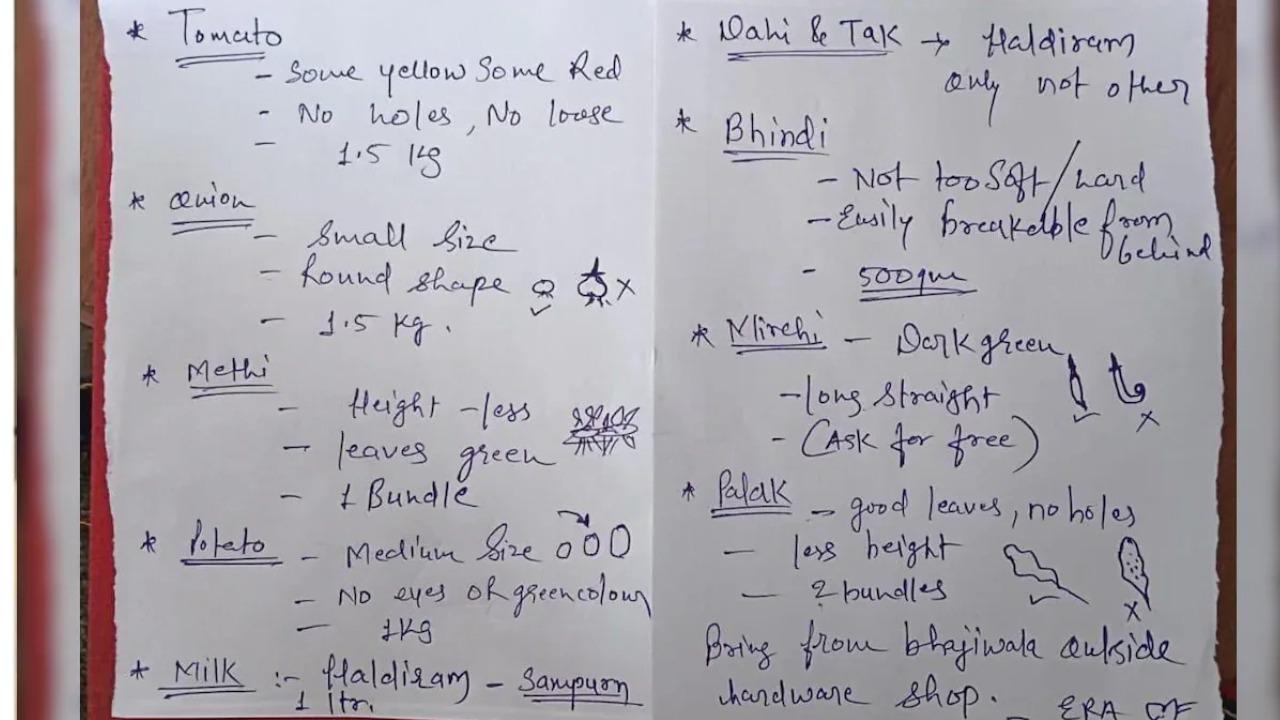 * Tomato
- Some yellow Some Red
- No holes, No loose
- 1.5 Kg
* onion
- Small Size
- Round shape
- 1.5 Kg.
* Methi
- Height - less
- leaves green
- 1 Bundle
* Potato - Medium Size
- No eyes or green colour
- 1 Kg
* Milk :- Haldiram - Sampurn
1 ltr.
* Dahi & Tak → Haldiram
only not other
* Bhindi
- Not too Soft/hard
- Easily breakable from
behind
- 500 gm
* Mirchi - Dark green
- long straight
- (Ask for free)
* Palak - good leaves, no holes
- less height
- 2 bundles
Bring from bhajiwala outside
hardware shop.